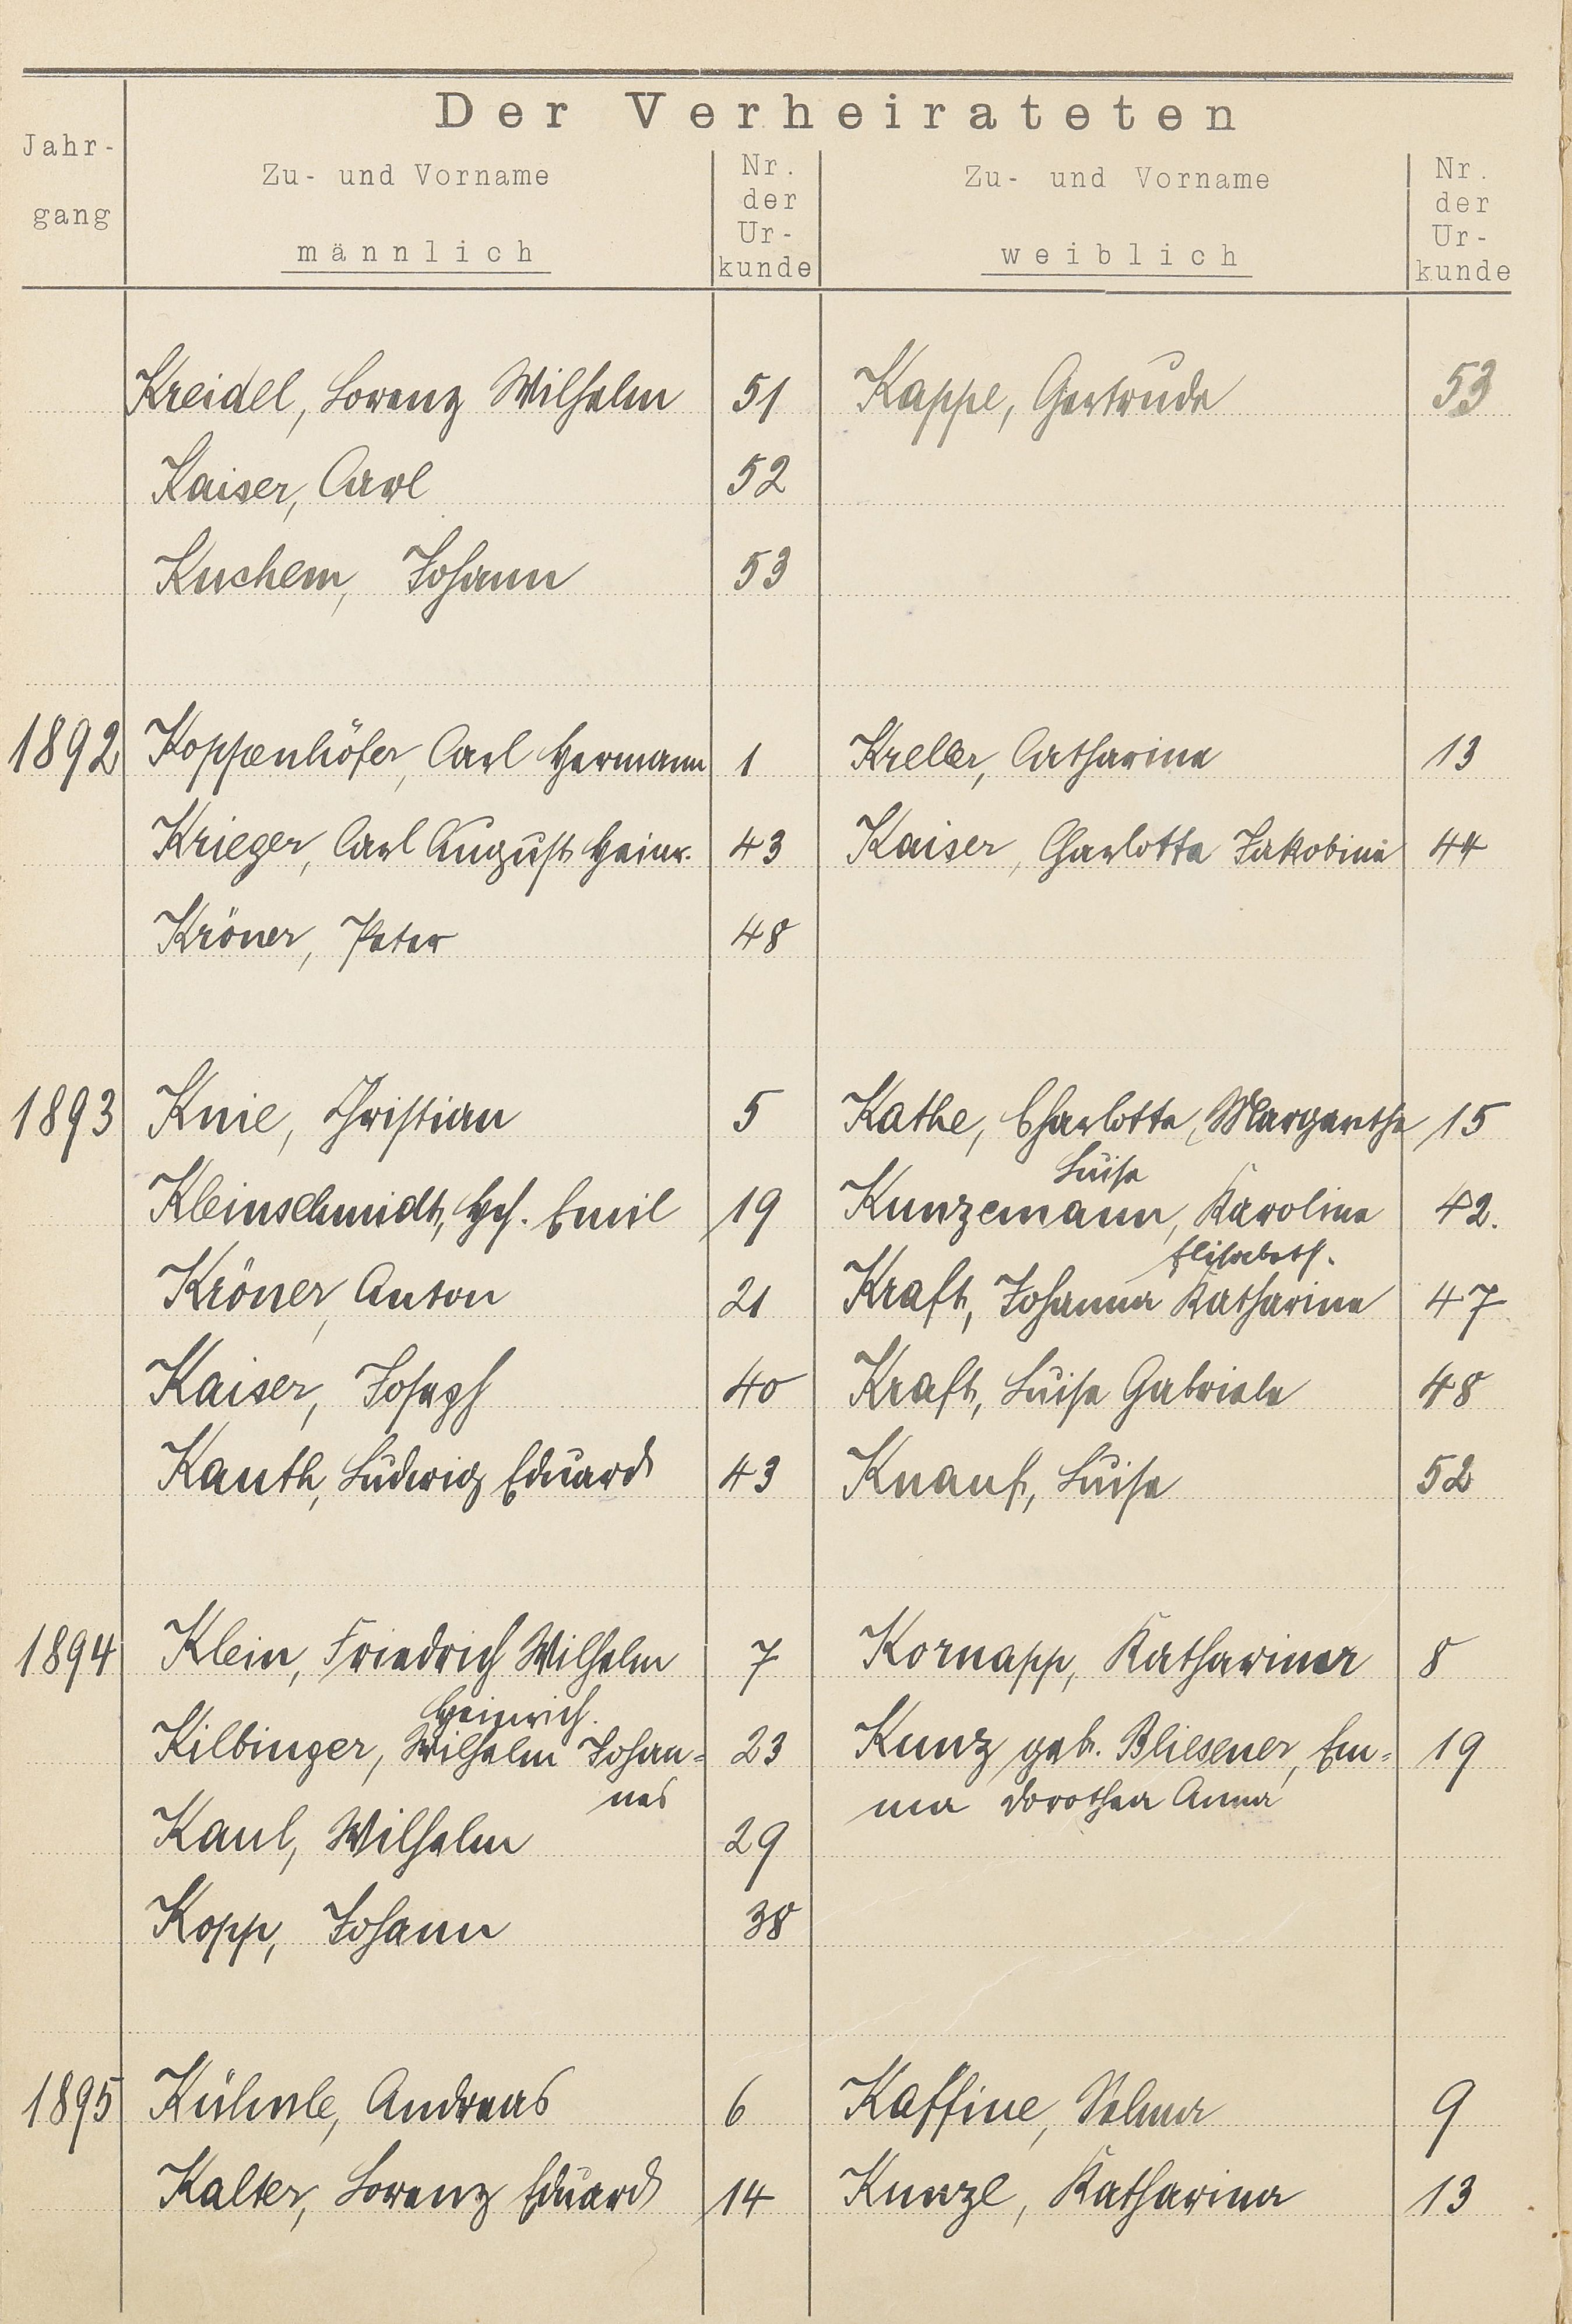 Der Verheirateten
Jahr-
gang
Zu- und Vorname
männlich
Nr.
der
Ur-
kunde
Zu- und Vorname
weiblich
Nr.
der
Ur-
kunde
Kreidel, Lorenz Wilhelm 51 Kappe, Gertrude 53
Kaiser, Carl 52
Kuchem, Johann 53
1892 Koppenhöfer, Carl Hermann 1 Kreller, Catharine 13
Krieger, Carl August Heinr. 43 Kaiser, Charlotte Jakobine 44
Kröner, Peter 48
1893 Knie, Christian 5 Kathe, Charlotte, Margarethe 15
Luise
Kleinschmidt, Hch. Emil 19 Kunzemann, Karoline 42.
Elisabeth.
Kröner, Anton 21 Kraft, Johanna Katharine 47
Kaiser, Joseph 40 Kraft, Luise Gabriele 48
Kauth, Ludwig Eduard 43 Knauf, Luise 52
1894 Klein, Friedrich Wilhelm 7 Kornapp, Katharina 8
Heinrich.
Kilbinger, Wilhelm Johan= 23 Kunz geb. Bliesener, Em= 19
nes ma Dorothea Anna
Kaul, Wilhelm 29
Kopp, Johann 38
1895 Kühnle, Andreas 6 Kaffine, Selma 9
Kalter, Lorenz Eduard 14 Kunzl, Katharina 13